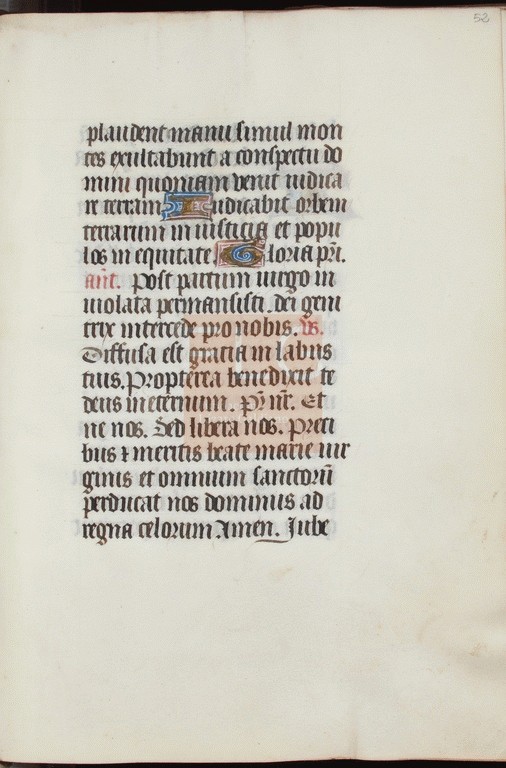 52
plaudent manu simul mon
tes exultabunt a conspectu do
mini quoniam venit iudica
re terram Iudicabit orbem
terrarum in iusticia et popu
los in equitate Gloria pri.
ant. Post partum uirgo in
uiolata permansisti. dei geni
trix intercede pro nobis. vs.
Diffusa est gracia in labiis
tuis. Propterea benedixit te
deus in eternum. Pr nr. Et
ne nos. Sed libera nos. Preci
bus ⁊ meritis beate marie uir
ginis et omnium sanctorū
perducat nos dominus ad
regna celorum Amen. Jube